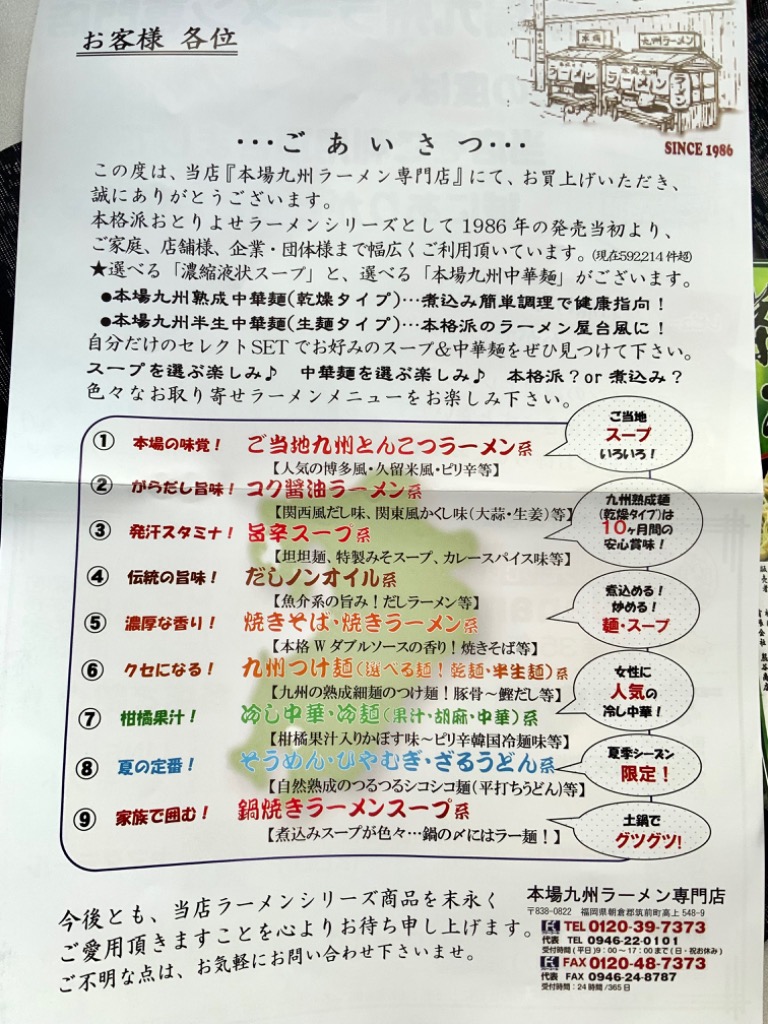 お客様 各位
本場
九州ラーメン
ラーメン
SINCE 1986
・・・ごあいさつ・・・
この度は、当店『本場九州ラーメン専門店』にて、お買上げいただき、
誠にありがとうございます。
本格派おとりよせラーメンシリーズとして1986年の発売当初より、
ご家庭、店舗様、企業・団体様まで幅広くご利用頂いています。(現在592,214件超)
★選べる「濃縮液状スープ」と、選べる「本場九州中華麺」がございます。
●本場九州熟成中華麺(乾燥タイプ)…煮込み簡単調理で健康指向！
●本場九州半生中華麺(生麺タイプ)…本格派のラーメン屋台風に！
自分だけのセレクトSETでお好みのスープ&中華麺をぜひ見つけて下さい。
スープを選ぶ楽しみ♪ 中華麺を選ぶ楽しみ♪ 本格派？or 煮込み？
色々なお取り寄せラーメンメニューをお楽しみ下さい。
① 本場の味覚！ ご当地九州とんこつラーメン系
【人気の博多風・久留米風・ピリ辛等】
ご当地
スープ
いろいろ！
② がらだし旨味！ コク醤油ラーメン系
【関西風だし味、関東風かくし味(大蒜・生姜)等】
九州熟成麺
(乾燥タイプ)は
10ヶ月間の
安心賞味！
③ 発汗スタミナ！ 旨辛スープ系
【坦坦麺、特製みそスープ、カレースパイス味等】
④ 伝統の旨味！ だしノンオイル系
【魚介系の旨み！だしラーメン等】
煮込める！
炒める！
麺・スープ
⑤ 濃厚な香り！ 焼きそば・焼きラーメン系
【本格Wダブルソースの香り！焼きそば等】
⑥ クセになる！ 九州つけ麺(選べる麺！乾麺・半生麺)系
【九州の熟成細麺のつけ麺！豚骨～鰹だし等】
女性に
人気の
冷し中華！
⑦ 柑橘果汁！ 冷し中華・冷麺(果汁・胡麻・中華)系
【柑橘果汁入りかぼす味～ピリ辛韓国冷麺味等】
⑧ 夏の定番！ そうめん・ひやむぎ・ざるうどん系
【自然熟成のつるつるシコシコ麺(平打ちうどん)等】
夏季シーズン
限定！
⑨ 家族で囲む！ 鍋焼きラーメンスープ系
【煮込みスープが色々…鍋の〆にはラー麺！】
土鍋で
グツグツ!
今後とも、当店ラーメンシリーズ商品を末永く
ご愛用頂きますことを心よりお待ち申し上げます。
ご不明な点は、お気軽にお問い合わせ下さいませ。
本場九州ラーメン専門店
〒838-0822 福岡県朝倉郡筑前町高上 548-9
TEL 0120-39-7373
代表 TEL 0946-22-0101
受付時間(平日)9：00～17：00まで(日・祝お休み)
FAX 0120-48-7373
代表 FAX 0946-24-8787
受付時間：24時間/365日